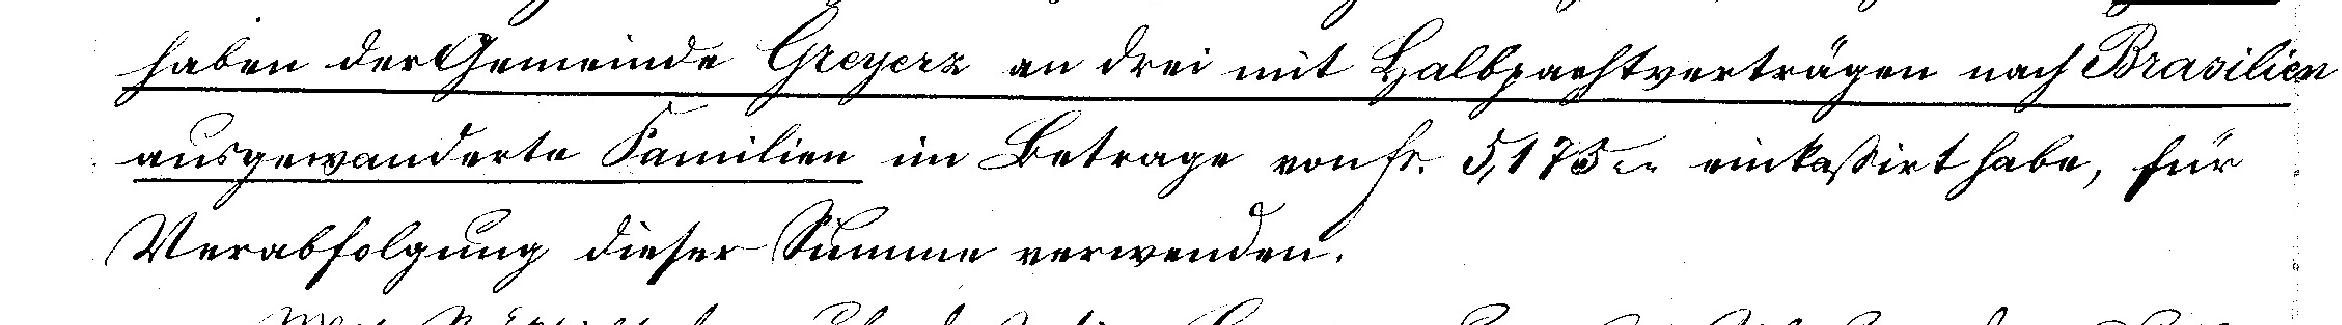 haben der Gemeinde Greyerz an drei mit Halbpachtverträgen nach Brasilien
ausgewanderte Familien im Betrage von fr. 5,175 einkaßirt habe, für
Verabfolgung dieser Summe verwenden.